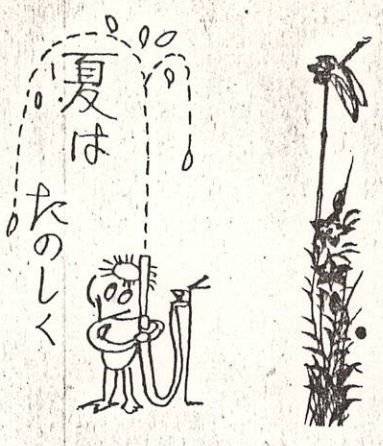 夏は
たのしく